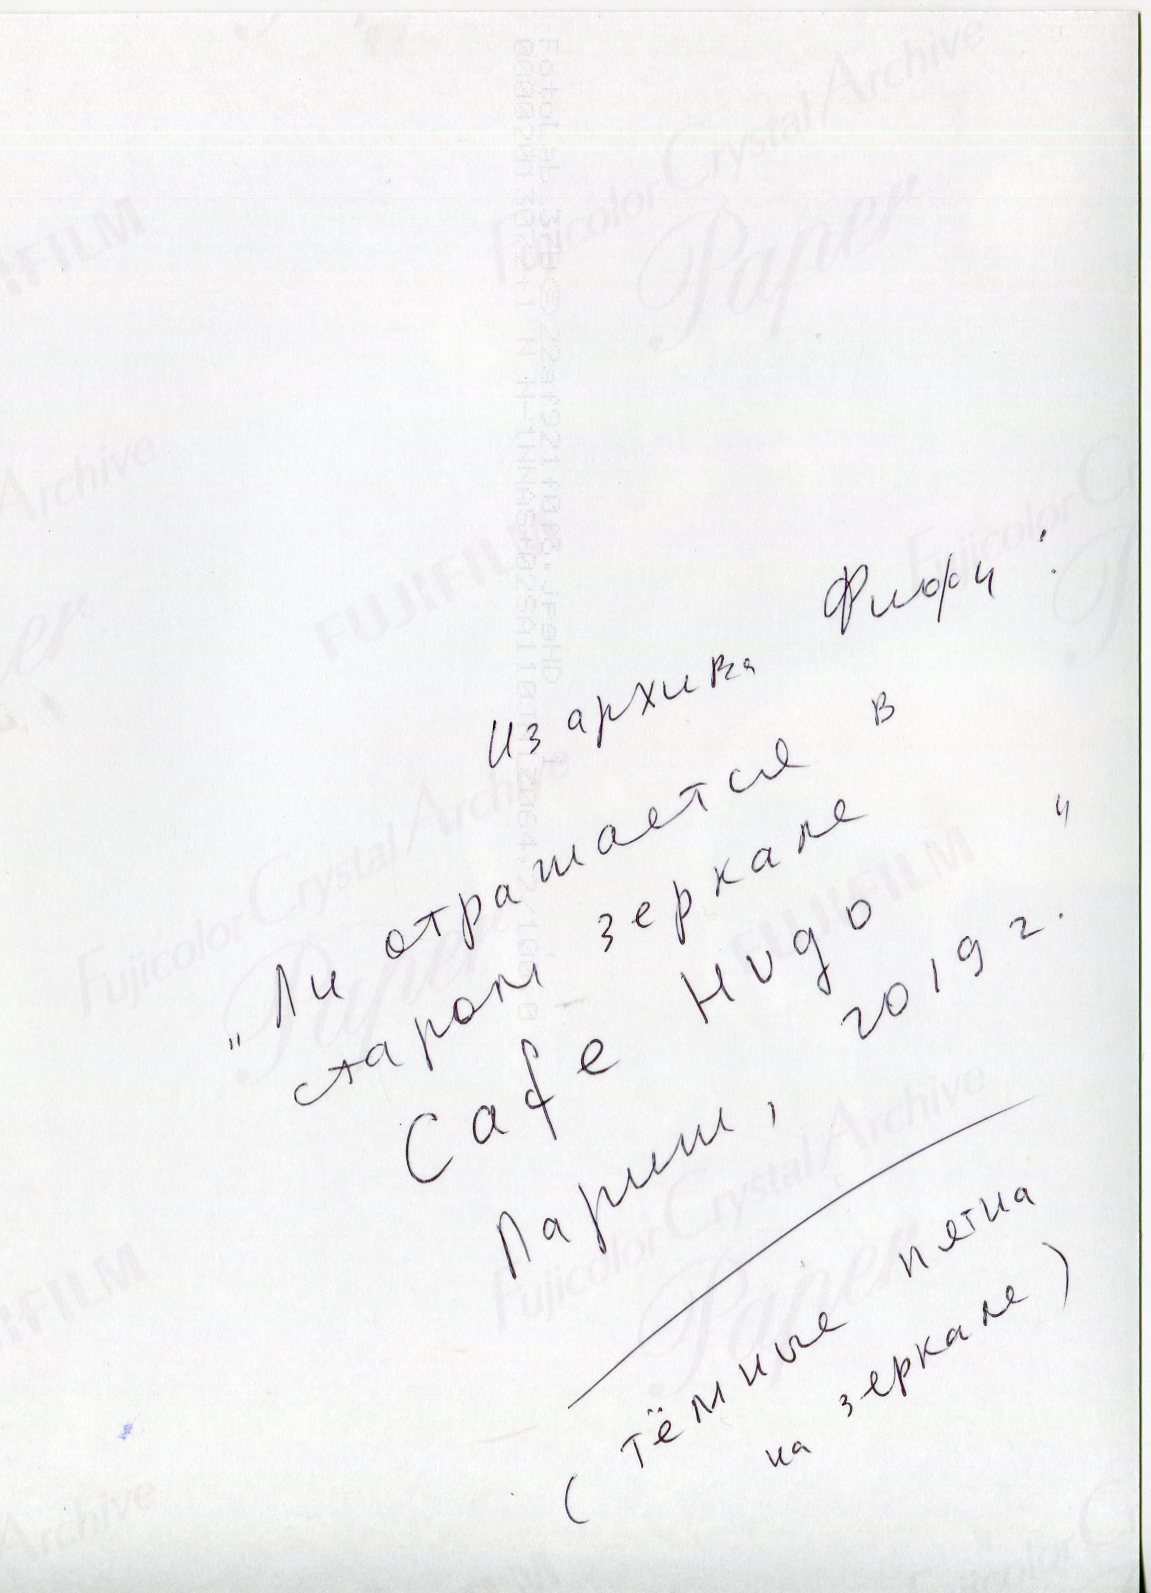 Из архива Фифи:
"Ли отражается в
старом зеркале
Cafe Hugo"
Париж, 2019 г.
(тёмные пятна
на зеркале)
FUJIFILM
Fujicolor Crystal Archive
Paper